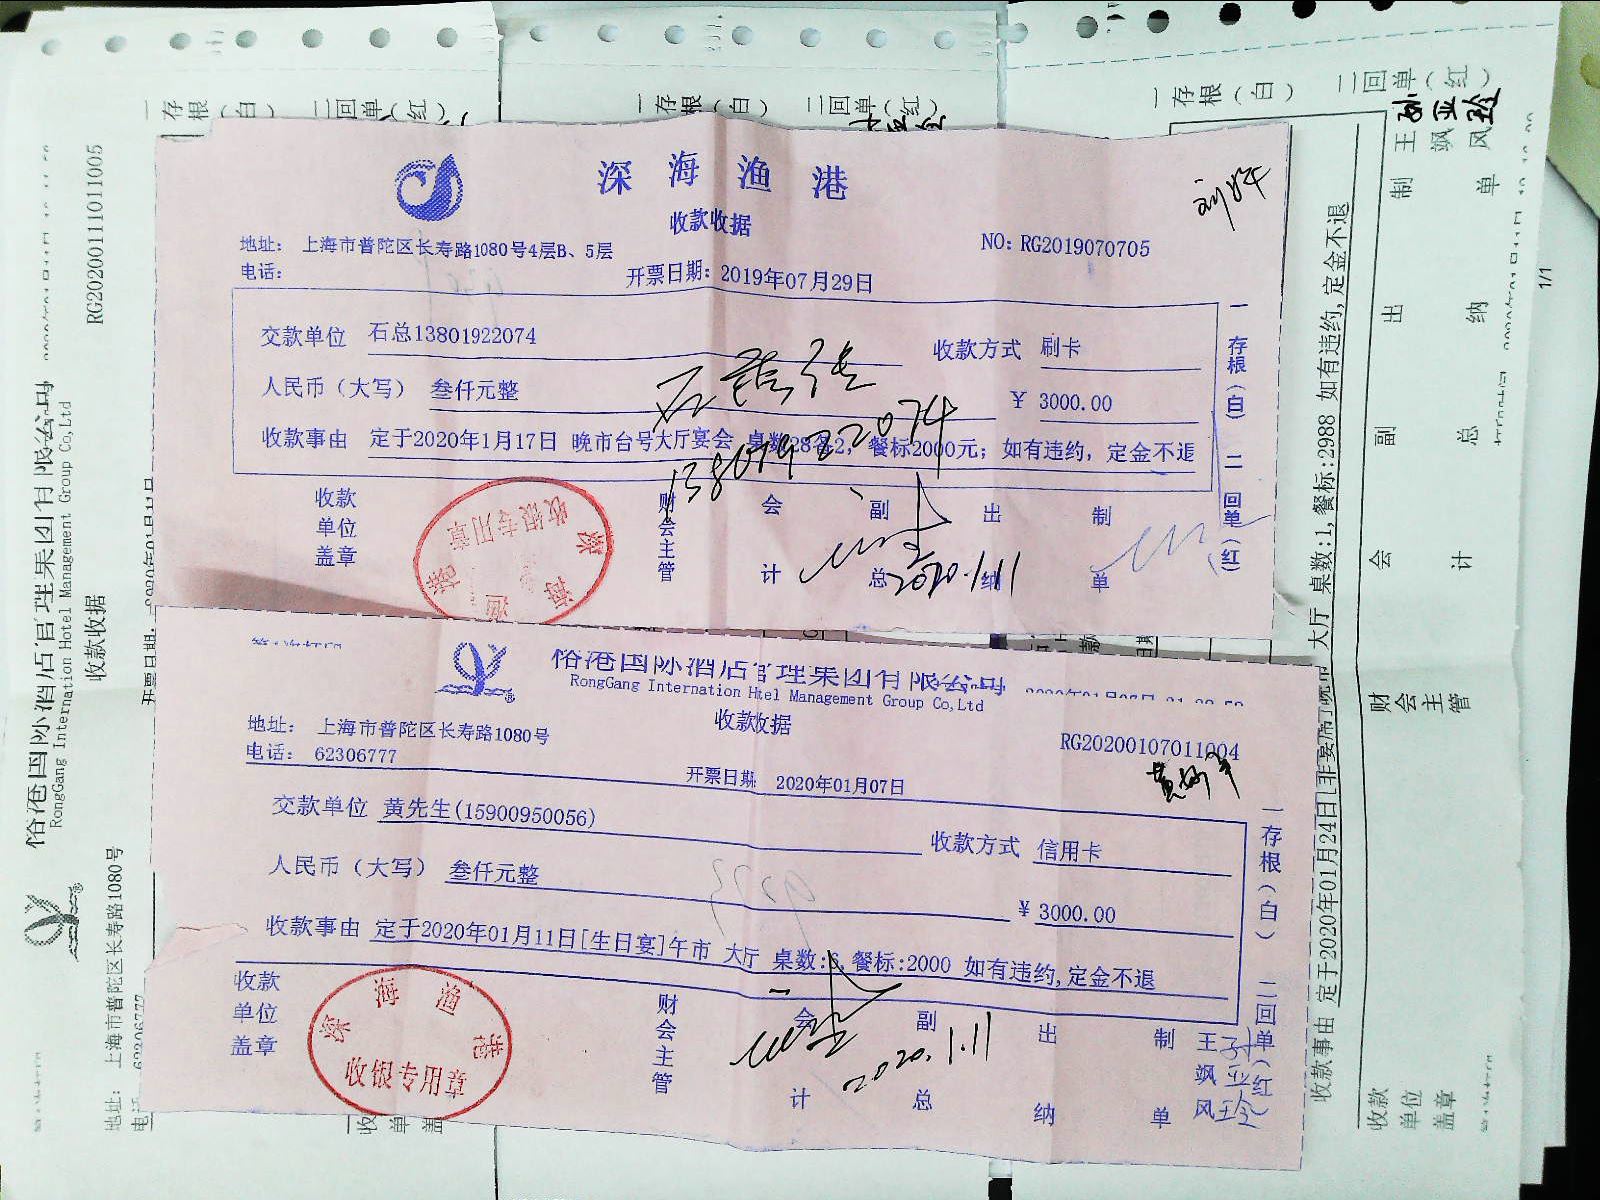 深海渔港
收款收据
地址： 上海市普陀区长寿路1080号4层B、5层
NO: RG2019070705
电话：
开票日期： 2019年07月29日
刘好
交款单位 石总13801922074
收款方式 刷卡
人民币（大写） 叁仟元整
¥ 3000.00
收款事由 定于2020年1月17日 晚市台号大厅宴会 桌数28备2， 餐标2000元；如有违约，定金不退
13801922074
收款单位盖章
财会主管
会计
副总
出纳
制单
2020.1.11
一存根（白） 二回单（红）
深海渔港
收银专用章
俗港国际酒店管理集团有限公司
RongGang Internation Htel Management Group Co,Ltd
收款收据
地址： 上海市普陀区长寿路1080号
RG20200107011004
电话： 62306777
开票日期 2020年01月07日
交款单位 黄先生(15900950056)
收款方式 信用卡
人民币（大写） 叁仟元整
¥ 3000.00
收款事由 定于2020年01月11日[生日宴]午市 大厅 桌数:6,餐标:2000 如有违约,定金不退
收款单位盖章
财会主管
会计
副总
出纳
制单
王飒风
2020.1.11
一存根（白） 二回单（红）
深海渔港
收银专用章
俗港国际酒店管理集团有限公司
RongGang Internation Hotel Management Group Co,Ltd
收款收据
RG20200111011005
地址： 上海市普陀区长寿路1080号
62306777
一存根（白） 二回单（红）
一存根（白） 二回单（红）
一存根（白） 二回单（红）
收款事由 定于2020年01月24日 大厅 桌数:1,餐标:2988 如有违约,定金不退
收款单位盖章
财会主管
会计
副总
出纳
制单
王飒风
1/1